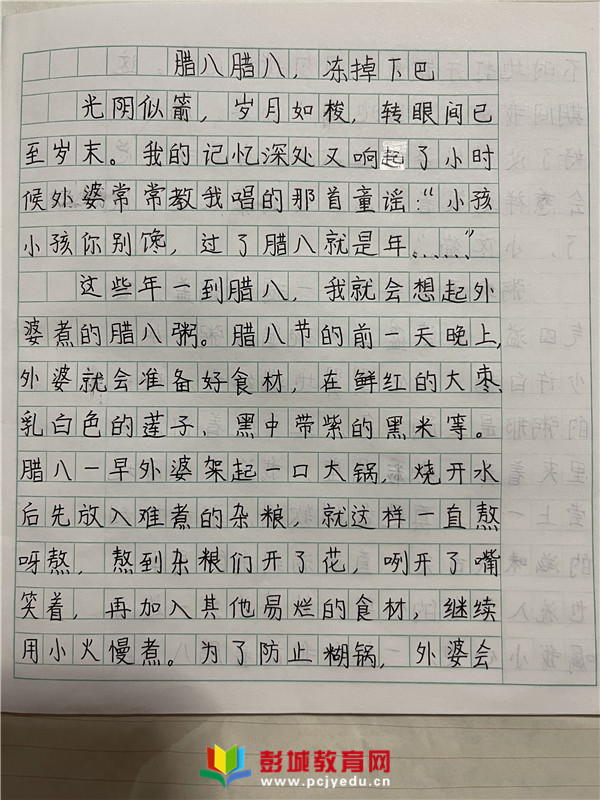 腊八腊八，冻掉下巴
光阴似箭，岁月如梭，转眼间已
至岁末。我的记忆深处又响起了小时
候外婆常常教我唱的那首童谣：“小孩
小孩你别馋，过了腊八就是年……”
这些年一到腊八，我就会想起外
婆煮的腊八粥。腊八节的前一天晚上，
外婆就会准备好食材，在鲜红的大枣、
乳白色的莲子、黑中带紫的黑米等。
腊八一早外婆架起一口大锅，烧开水
后先放入难煮的杂粮，就这样一直熬
呀熬，熬到杂粮们开了花，咧开了嘴
笑着，再加入其他易烂的食材，继续
用小火慢煮。为了防止糊锅，外婆会
彭城教育网
www.pcjyedu.cn